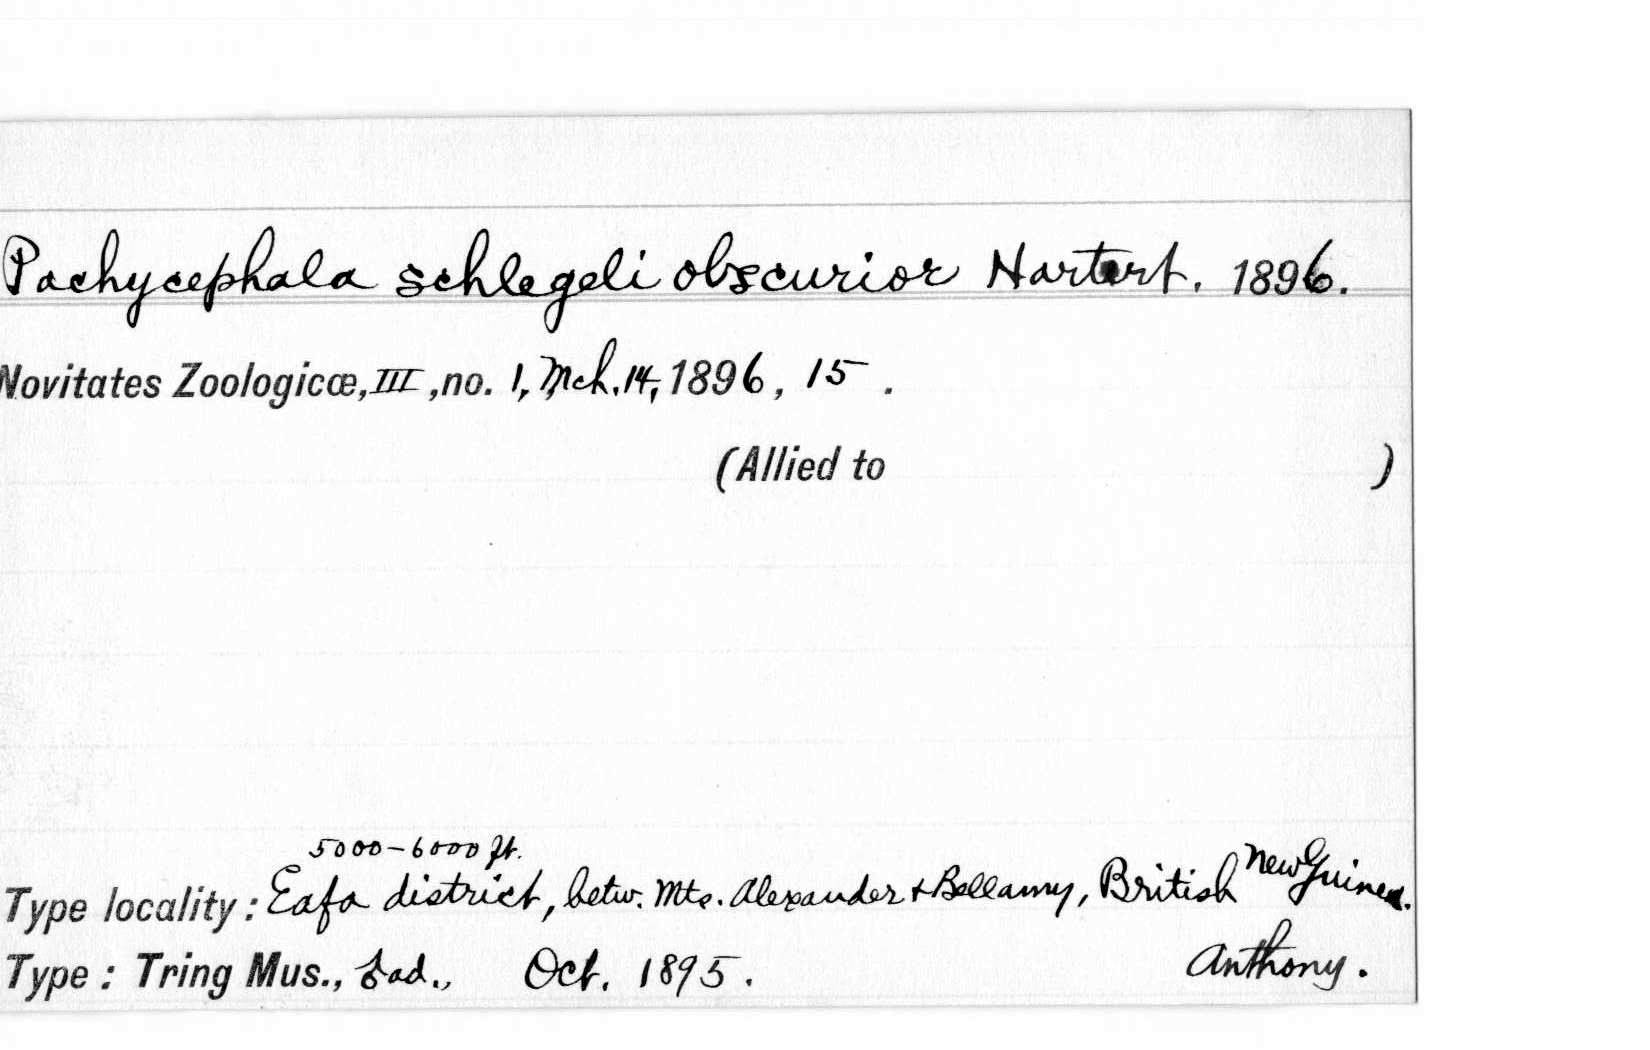 Pachycephala schlegeli obscurior Hartert. 1896.
Novitates Zoologicæ, III, no. 1, Mch. 14, 1896, 15.
(Allied to )
5000-6000 ft.
Type locality: Eafa district, betw. Mts. Alexander & Bellamy, British New Guinea.
Type: Tring Mus., ♂ ad., Oct. 1895. Anthony.